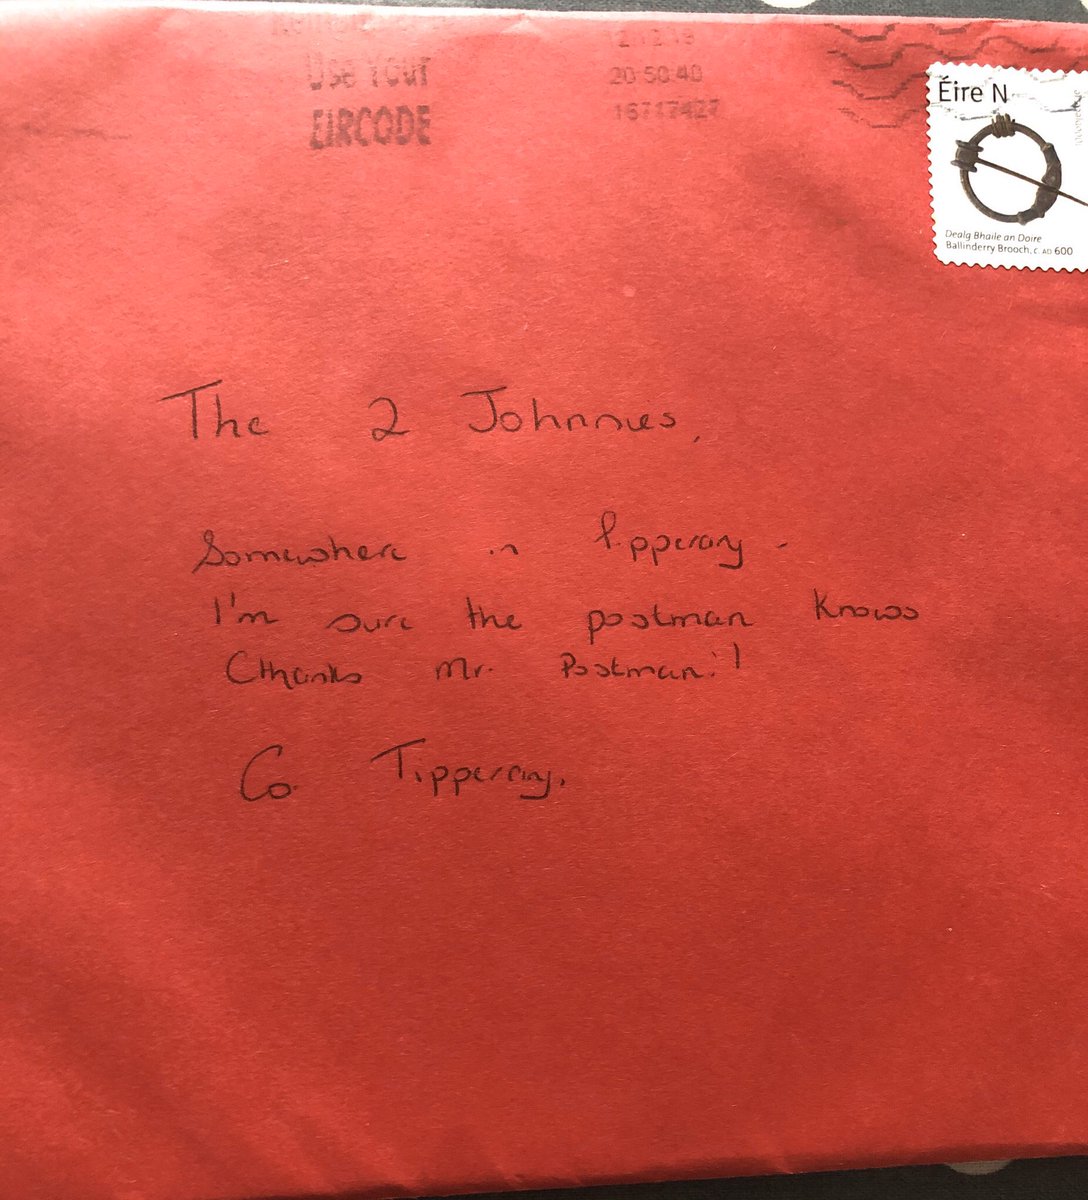 Use Your
EIRCODE
20 50 40
16717427
Éire N
Dealg Bhaile an Doire
Ballinderry Brooch, c. AD 600
The 2 Johnnies,
Somewhere in Tipperary -
I'm sure the postman knows
(thanks Mr. Postman!)
Co. Tipperary.